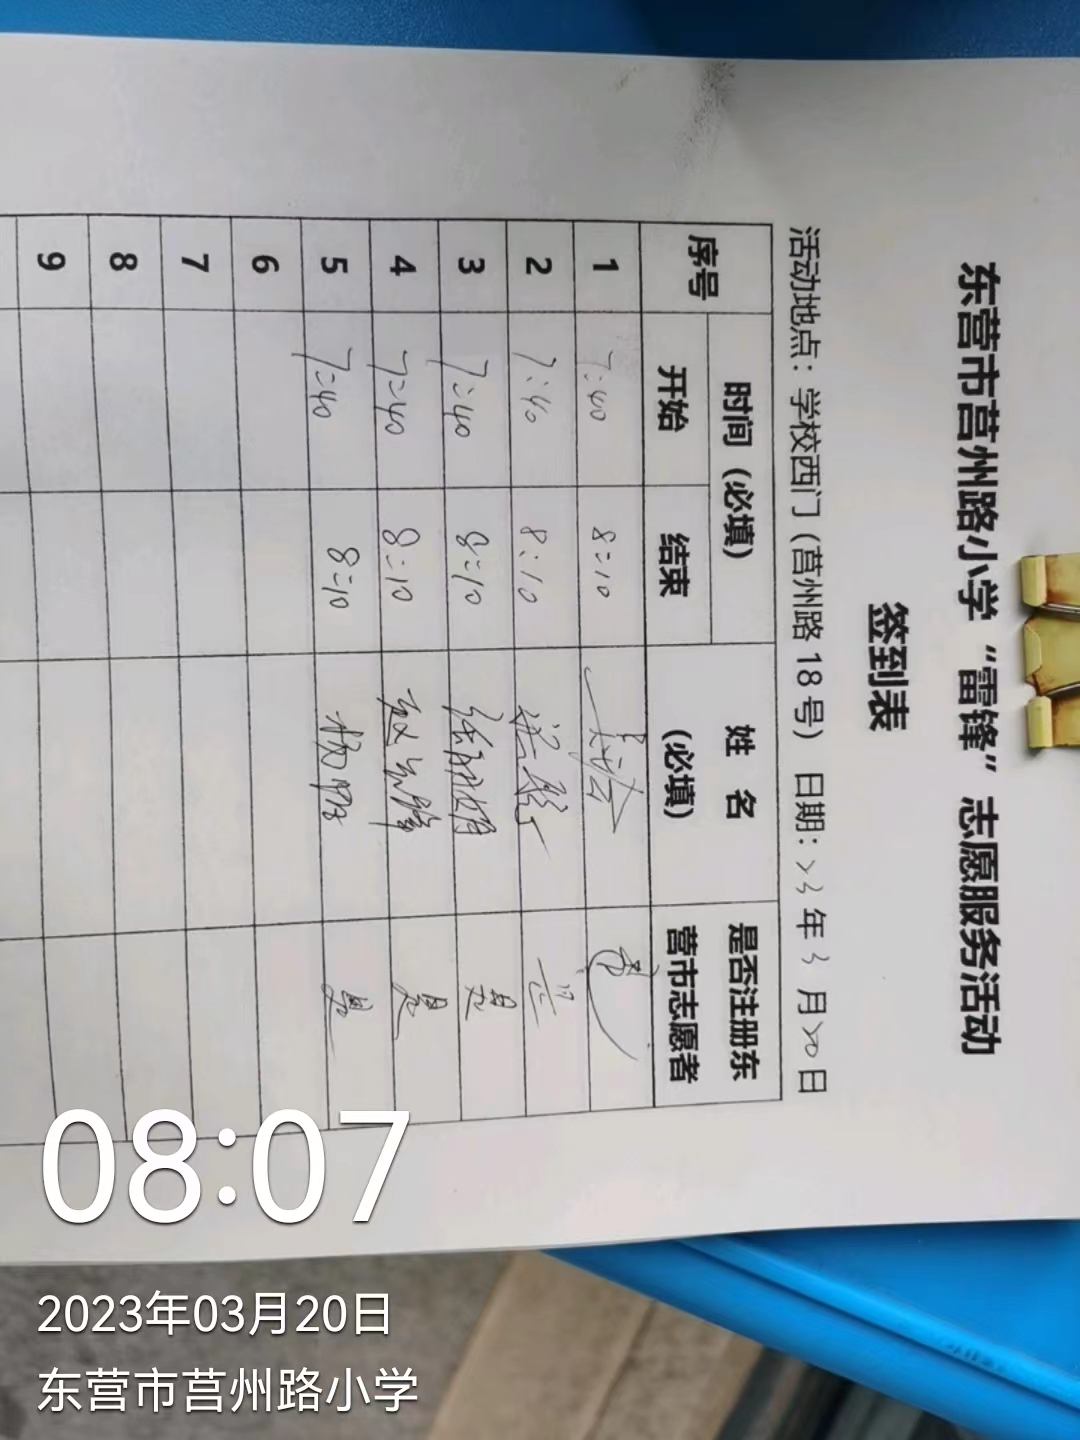 东营市莒州路小学“雷锋”志愿服务活动
签到表
活动地点：学校西门（莒州路18号） 日期：23年3月20日
序号 时间（必填） 姓 名（必填） 是否注册东营市志愿者
开始 结束
1 7:40 8:10 是
2 7:40 8:10 是
3 7:40 8:10 是
4 7:40 8:10 是
5 7:40 8:10 是
6
7
8
9
08:07
2023年03月20日
东营市莒州路小学